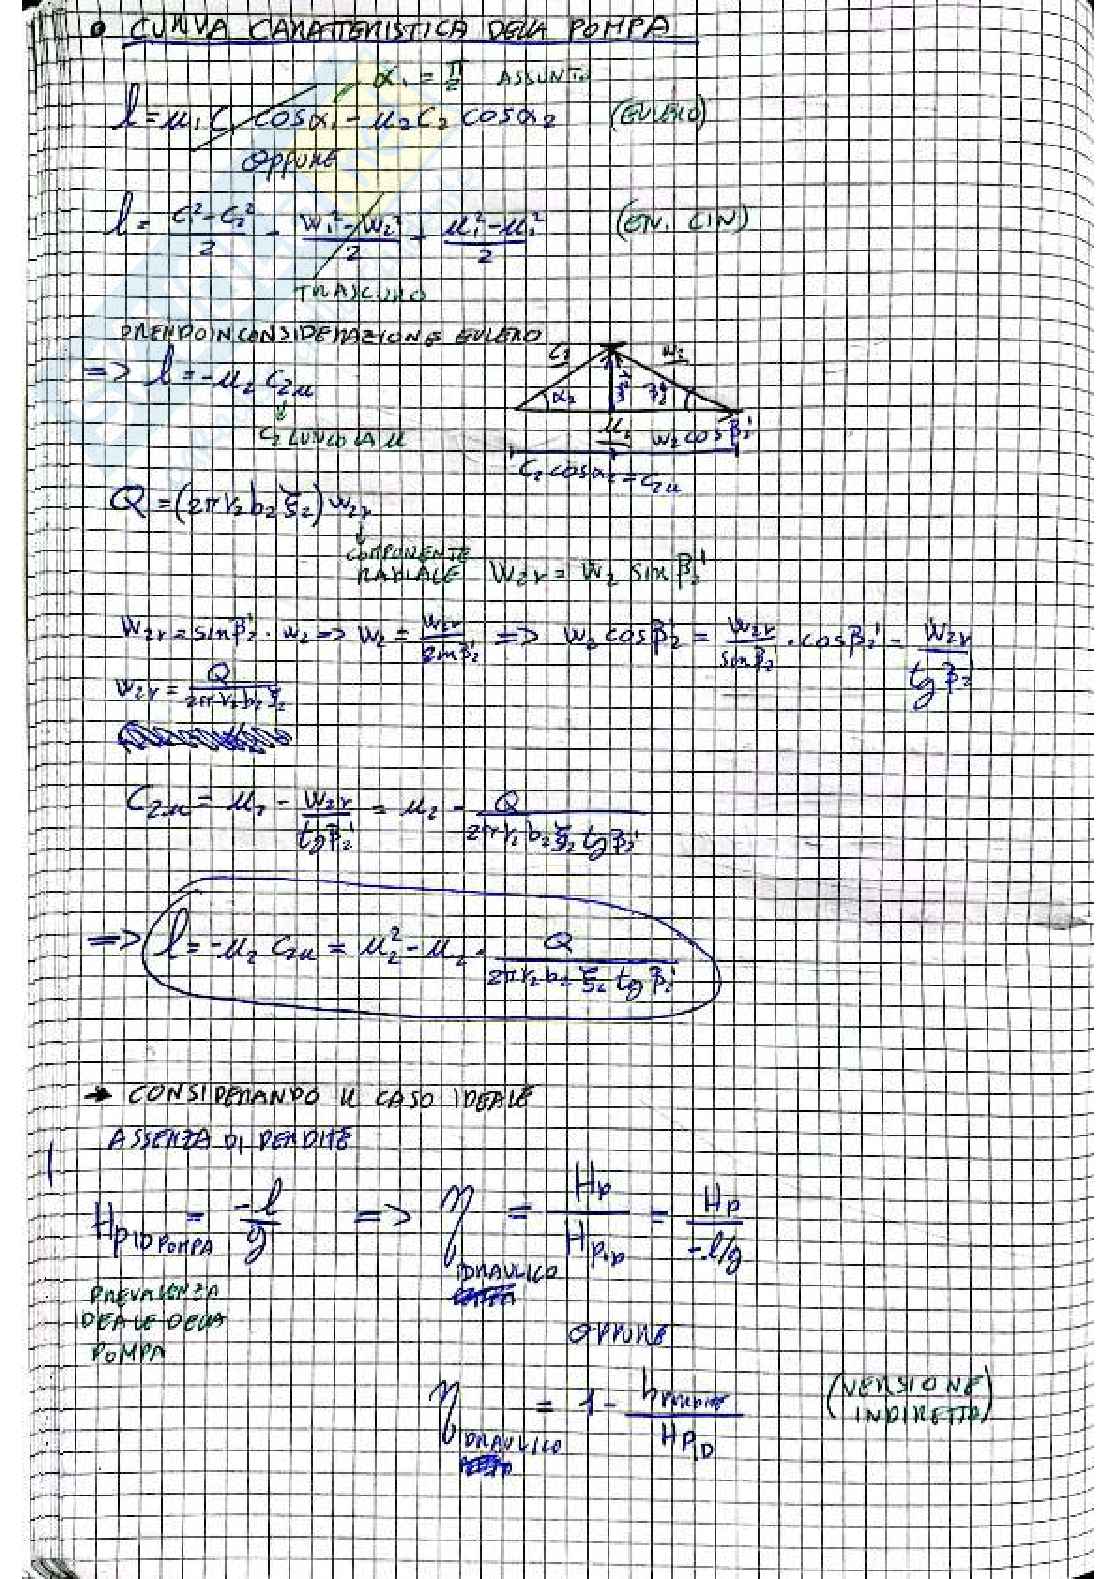 • CURVA CARATTERISTICA DELLA POMPA
α₁ = π/2 ASSUNTO
l = u₁ C₁ cosα₁ - u₂ C₂ cosα₂ (EULERO)
OPPURE
l = (C₁² - C₂²)/2 - (w₁² - w₂²)/2 + (u₁² - u₂²)/2 (EN. CIN)
TRASCURO
PRENDO IN CONSIDERAZIONE EULERO
=> l = -u₂ C₂u
C₂ LUNGO LA u
C₂ w₂
α₂ β₂'
u₂ w₂ cosβ₂'
C₂ cosα₂ = C₂u
Q = (2π r₂ b₂ ξ₂) w₂r
COMPONENTE
RADIALE w₂r = w₂ sinβ₂'
w₂r = sinβ₂' · w₂ => w₂ = w₂r/sinβ₂' => w₂ cosβ₂' = w₂r/sinβ₂ · cosβ₂' = w₂r/tgβ₂
w₂r = Q/(2π r₂ b₂ ξ₂)
C₂u = u₂ - w₂r/tgβ₂' = u₂ - Q/(2π r₂ b₂ ξ₂ tgβ₂')
=> l = -u₂ C₂u = u₂² - u₂ · Q/(2π r₂ b₂ ξ₂ tgβ₂')
→ CONSIDERANDO IL CASO IDEALE
ASSENZA DI PERDITE
Hp ID POMPA = -l/g => η IDRAULICO = Hp/Hp ID = Hp/(-l/g)
PREVALENZA
IDEALE DELLA
POMPA
OPPURE
η IDRAULICO = 1 - h perdite/Hp ID (VERSIONE
INDIRETTA)